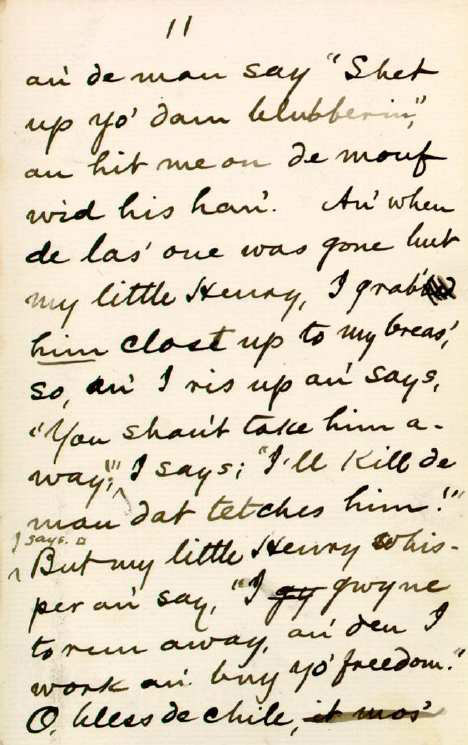 11
an' de man say "Shet
up yo' dam blubberin',"
an hit me on de mouf
wid his han'. An' when
de las' one was gone but
my little Henry, I grab'
him clost up to my breas',
so, an' I ris up an' says,
"You shan't take him a-
way," I says; "I'll kill de
man dat tetches him!"
I says.
But my little Henry whis-
per an' say, "I gy gwyne
to run away, an' den I
work an' buy yo' freedom."
O, bless de chile, it mos'